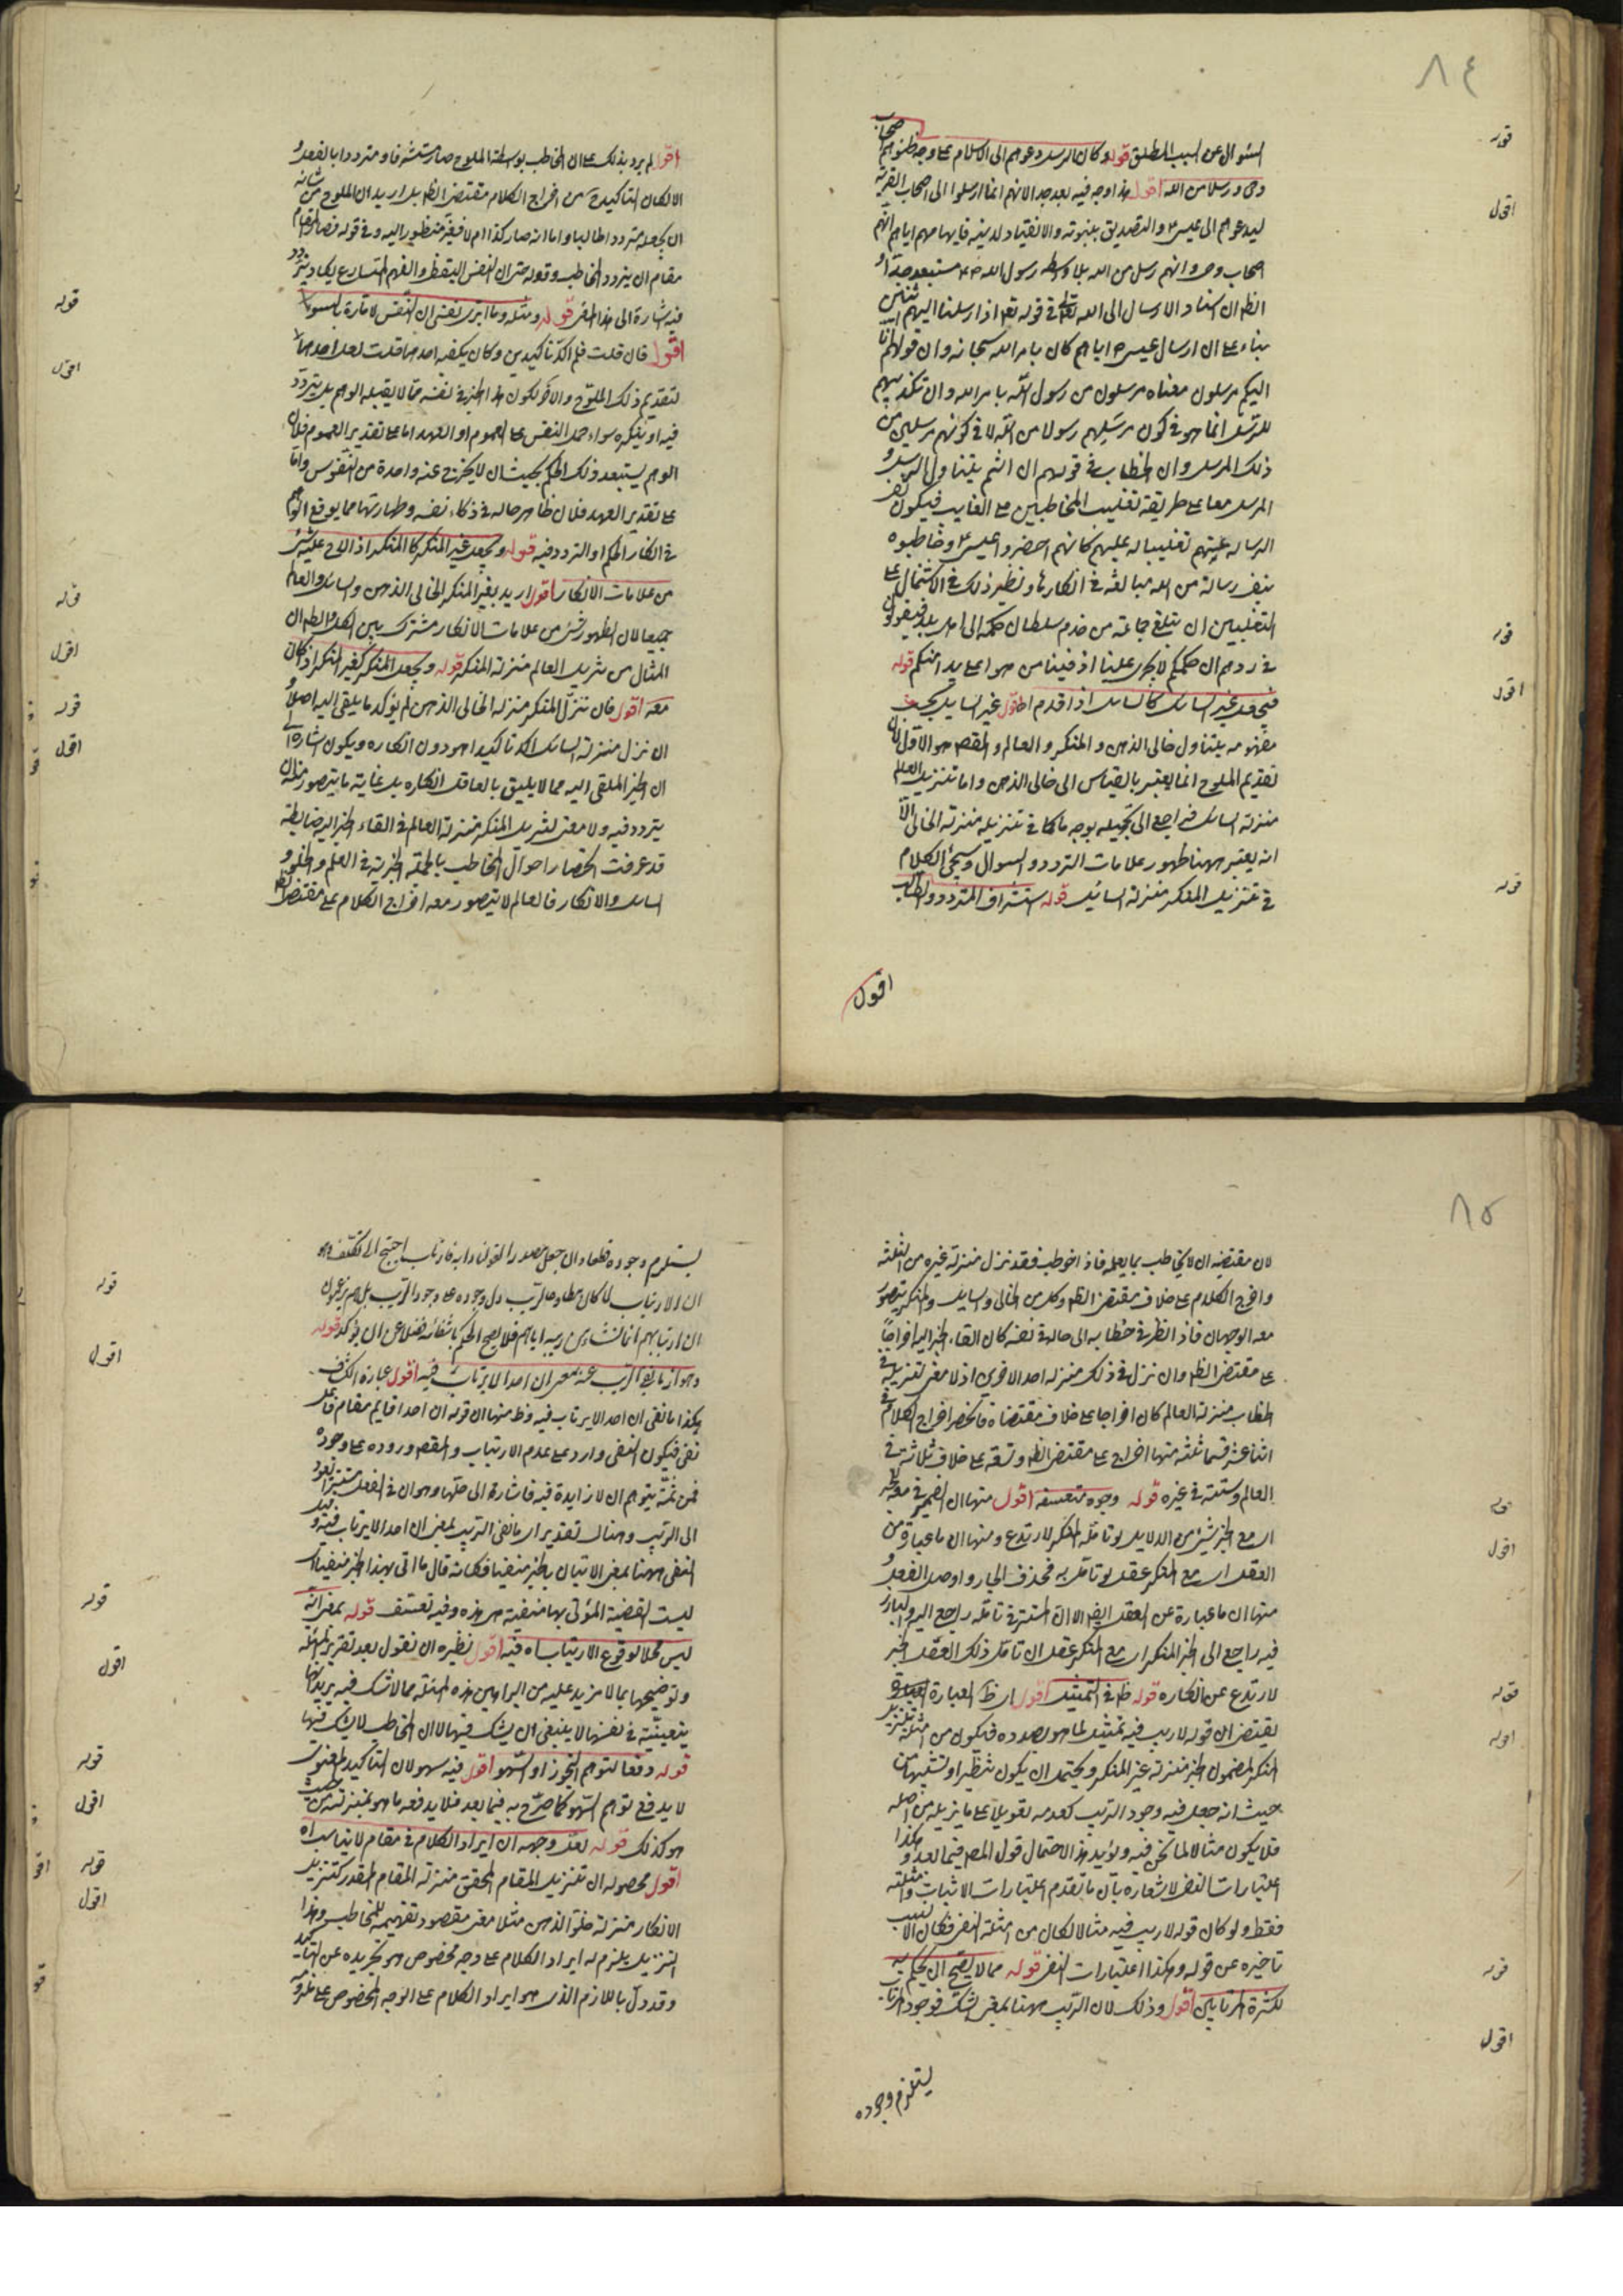 ٨٤
السئوال عن السبب المطلق قوله وكان الرسل دعوهم الى الاسلام على وجه ظنوهم اصحاب
وحى ورسلا من الله اقول هذا وجه فيه بعد جدا لانهم انما ارسلوا الى اصحاب القرية
ليدعوهم الى عيسى ع والتصديق بنبوته والانقياد لدينه فايهامهم اياهم انهم
اصحاب وحى وانهم رسل من الله بلا واسطة رسول الله مستبعد جدا
الظ ان اسناد الارسال الى الله تعالى فى قوله تع اذ ارسلنا اليهم اثنين
بناء على ان ارسال عيسى ع اياهم كان بامر الله سبحانه وان قولهم انا
اليكم مرسلون معناه مرسلون من رسول الله بامر الله وان تكذيبهم
للرسل انما هو فى كون مرسلهم رسولا من الله لا فى كونهم مرسلين من
ذلك المرسل وان الخطاب فى قولهم ان انتم يتناول الرسل و
المرسل معا على طريقة تغليب المخاطبين على الغايب فيكون نفى
الرسالة عنهم تغليبا له عليهم كانهم احضروا عيسى ع وخاطبوه
بنفى رسالة من الله مبالغة فى انكارها ونظير ذلك فى الاشتمال على
التغليبين ان يبلغ جماعة من خدم سلطان حكمه الى اهل بلد فيقولون
فى ردهم ان حكمكم لا يجرى علينا اذ فينا من هو اعلى يدا منكم قوله
فيجعل غير السائل كالسائل اذا قدم اقول غير السايل بحسب
مفهومه يتناول خالى الذهن و المنكر و العالم والمقص هو الاول لان
تقديم الملوح انما يعتبر بالقياس الى خالى الذهن واما تنزيل العالم
منزلة السائل فراجع الى تجهيله بوجه ما كما فى تنزيله منزلة الخالى الا
انه يعتبر ههنا ظهور علامات التردد و السوال وسيجئ الكلام
فى تنزيل المنكر منزلة السايل قوله استشراف المتردد والطالب
اقول
قوله
اقول
قوله
اقول
قوله
اقول لم يرد بذلك ان المخاطب بواسطة الملوح صار مستشرفا ومترددا بالفعل و
الا لكان التاكيد ح من اخراج الكلام مقتضى الظ بل اريد ان الملوح من شانه
ان يجعله مترددا طالبا واما انه صار كذا ام لا فغير منظور اليه وفى قوله فصار المقام
مقام ان يتردد المخاطب وقوله حتى ان النفس اليقظى والفهم المتسارع يكاد يتردد
فيه اشارة الى هذا المعنى قوله ومثله وما ابرئ نفسى ان النفس لامارة بالسوء
اقول فان قلت فلم اكد تاكيدين وكان يكفيه احدهما قلت لعل احدهما
لتقديم ذلك الملوح والاخر لكون هذا الخبر فى نفسه مما لا يقبله الوهم بل يتردد
فيه او ينكره سواء حمل النفس على العموم او العهد اما على تقدير العموم فلان
الوهم يستبعد ذلك الحكم بحيث ان لا يخرج عنه واحدة من النفوس واما
على تقدير العهد فلان ظاهر حاله فى ذكاء نفسه وطهارتها مما يوقع الوهم
فى انكار الحكم او التردد فيه قوله ويجعل غير المنكر كالمنكر اذا لاح عليه شئ
من علامات الانكار اقول اريد بغير المنكر الخالى الذهن والسائل والعالم
جميعا لان ظهور شئ من علامات الانكار مشترك بين الكل والظ ان
المثال من تنزيل العالم منزلة المنكر قوله ويجعل المنكر كغير المنكر اذا كان
معه اقول فان تنزل المنكر منزلة الخالى الذهن لم يؤكد ما يلقى اليه اصلا و
ان نزل منزلة السائل اكد تاكيدا هو دون انكاره ويكون اشارة الى
ان الخبر الملقى اليه مما لا يليق بالعاقل انكاره بل غاية ما يتصور منه ان
يتردد فيه ولا معنى لتنزيل المنكر منزلة العالم فى القاء الخبر اليه ضابطة
قد عرفت انحصار احوال المخاطب بالجملة الخبرية فى العلم والخلو و
السائل والانكار فالعالم لا يتصور معه اخراج الكلام على مقتضى الظ
قوله
اقول
قوله
اقول
قوله
اقول
٨٥
لان مقتضيه ان لا يخاطب بما يعلمه فاذا خوطب فقد نزل منزلة غيره من الثلثة
واخرج الكلام على خلاف مقتضى الظ وكل من الخالى والسايل والمنكر يتصور
معه الوجهان فاذا نظر فى خطابه الى حاله فى نفسه كان القاء الخبر اليه اخراجا
على مقتضى الظ وان نزل فى ذلك منزلة احد الاخرين اذ لا معنى لتنزيله فى
الخطاب منزلة العالم كان اخراجا على خلاف مقتضاه فانحصر اخراج الكلام فى
اثنا عشر قسما ثلثة منها اخراج على مقتضى الظ وتسعة على خلاف ثلاثة فى
العالم وستة فى غيره قوله وجوه متعسفة اقول منها ان الضمير فى معه
اى مع الخبر شئ من الدلايل لو تأمله المنكر لارتدع ومنها ان ما عبارة عن
العقل اى مع المنكر عقل لو تأمل به فحذف الجار واوصل الفعل و
منها ان ما عبارة عن العقل ايض الا ان المستتر فى تامله راجع اليه والبارز
فيه راجع الى الخبر المنكر اى مع المنكر عقل ان تامل ذلك العقل الخبر
لارتدع عن انكاره قوله ظ فى التمثيل اقول اى ظ العبارة
يقتضى ان قوله لا ريب فيه تمثيل لما هو بصدده فيكون من امثلة تنزيل
المنكر لمضمون الخبر منزلة غير المنكر ويحتمل ان يكون تنظيرا وتشبيها من
حيث انه جعل فيه وجود الريب كعدمه تعويلا على ما يزيله من اصله
فلا يكون مثالا لما نحن فيه ويؤيد هذا الاحتمال قول المص فيما بعد وهكذا
اعتبارات النفى لاشعاره بان ما تقدم اعتبارات الاثبات وامثلته
فقط ولو كان قوله لا ريب فيه مثالا لكان من امثلة النفى فكان الانسب
تاخيره عن قوله وهكذا اعتبارات النفى قوله مما لا يصح ان يحكم به
لكثرة المرتابين اقول وذلك لان الريب ههنا بمعنى الشك فوجود المرتاب
يستلزم وجوده
قوله
اقول
قوله
اقول
قوله
اقول
يستلزم وجوده قطعا وان جعل مصدرا لقولنا رابه فارتاب احتيج الى تكلف وهو
ان الارتياب لما كان مطاوعا للريب دل وجوده على وجود الريب بل هم يزعمون
ان ارتيابهم انما نشاء من ريبه اياهم فلا يصح الحكم بانتفائه فضلا عن ان يؤكد قوله
اقول عبارة الكشاف
هكذا ما نفى ان احدا لا يرتاب فيه وظ منها ان قوله ان احدا قايم مقام فاعل
نفى فيكون النفى واردا على عدم الارتياب والمقص وروده على وجوده
فمن ثمة يتوهم ان لا زايدة فيه فاشار الى حلها وهو ان فى الفعل مستترا يعود
الى الريب وهناك تقدير اى ما نفى الريب بمعنى ان احدا لا يرتاب فيه و
النفى ههنا بمعنى الاتيان بالخبر منفيا فكانه قال ما اتى بهذا الخبر منفيا اى
ليست القضية المؤتى بها منفية هى هذه وفيه تعسف قوله بمعنى انه
ليس محلا لوقوع الارتياب اه فيه اقول نظيره ان تقول بعد تقرير المسئلة
وتوضيحها بما لا مزيد عليه من البراهين هذه المسئلة مما لا شك فيه يريد انها
يقينية فى نفسها لا ينبغى ان يشك فيها لا ان المخاطب لا يشك فيها
قوله دفعا لتوهم التجوز او السهو اقول فيه سهو لان التاكيد المعنوى
لا يدفع توهم السهو كما صرح به فيما بعد فلا يدفعه ما هو بمنزلته من حيث
هو كذلك قوله لعل وجهه ان ايراد الكلام فى مقام لا يناسبه اه
اقول محصوله ان تنزيل المقام المحقق منزلة المقام المقدر كتنزيل
الانكار منزلة خلو الذهن مثلا معنى مقصود تفهيمه للمخاطب وهذا
التنزيل يلزم له ايراد الكلام على وجه مخصوص هو تجريده عن التاكيد
وقد دل باللازم الذى هو ايراد الكلام على الوجه المخصوص على ملزومه
قوله
اقول
قوله
اقول
قوله
اقول
قوله
اقول